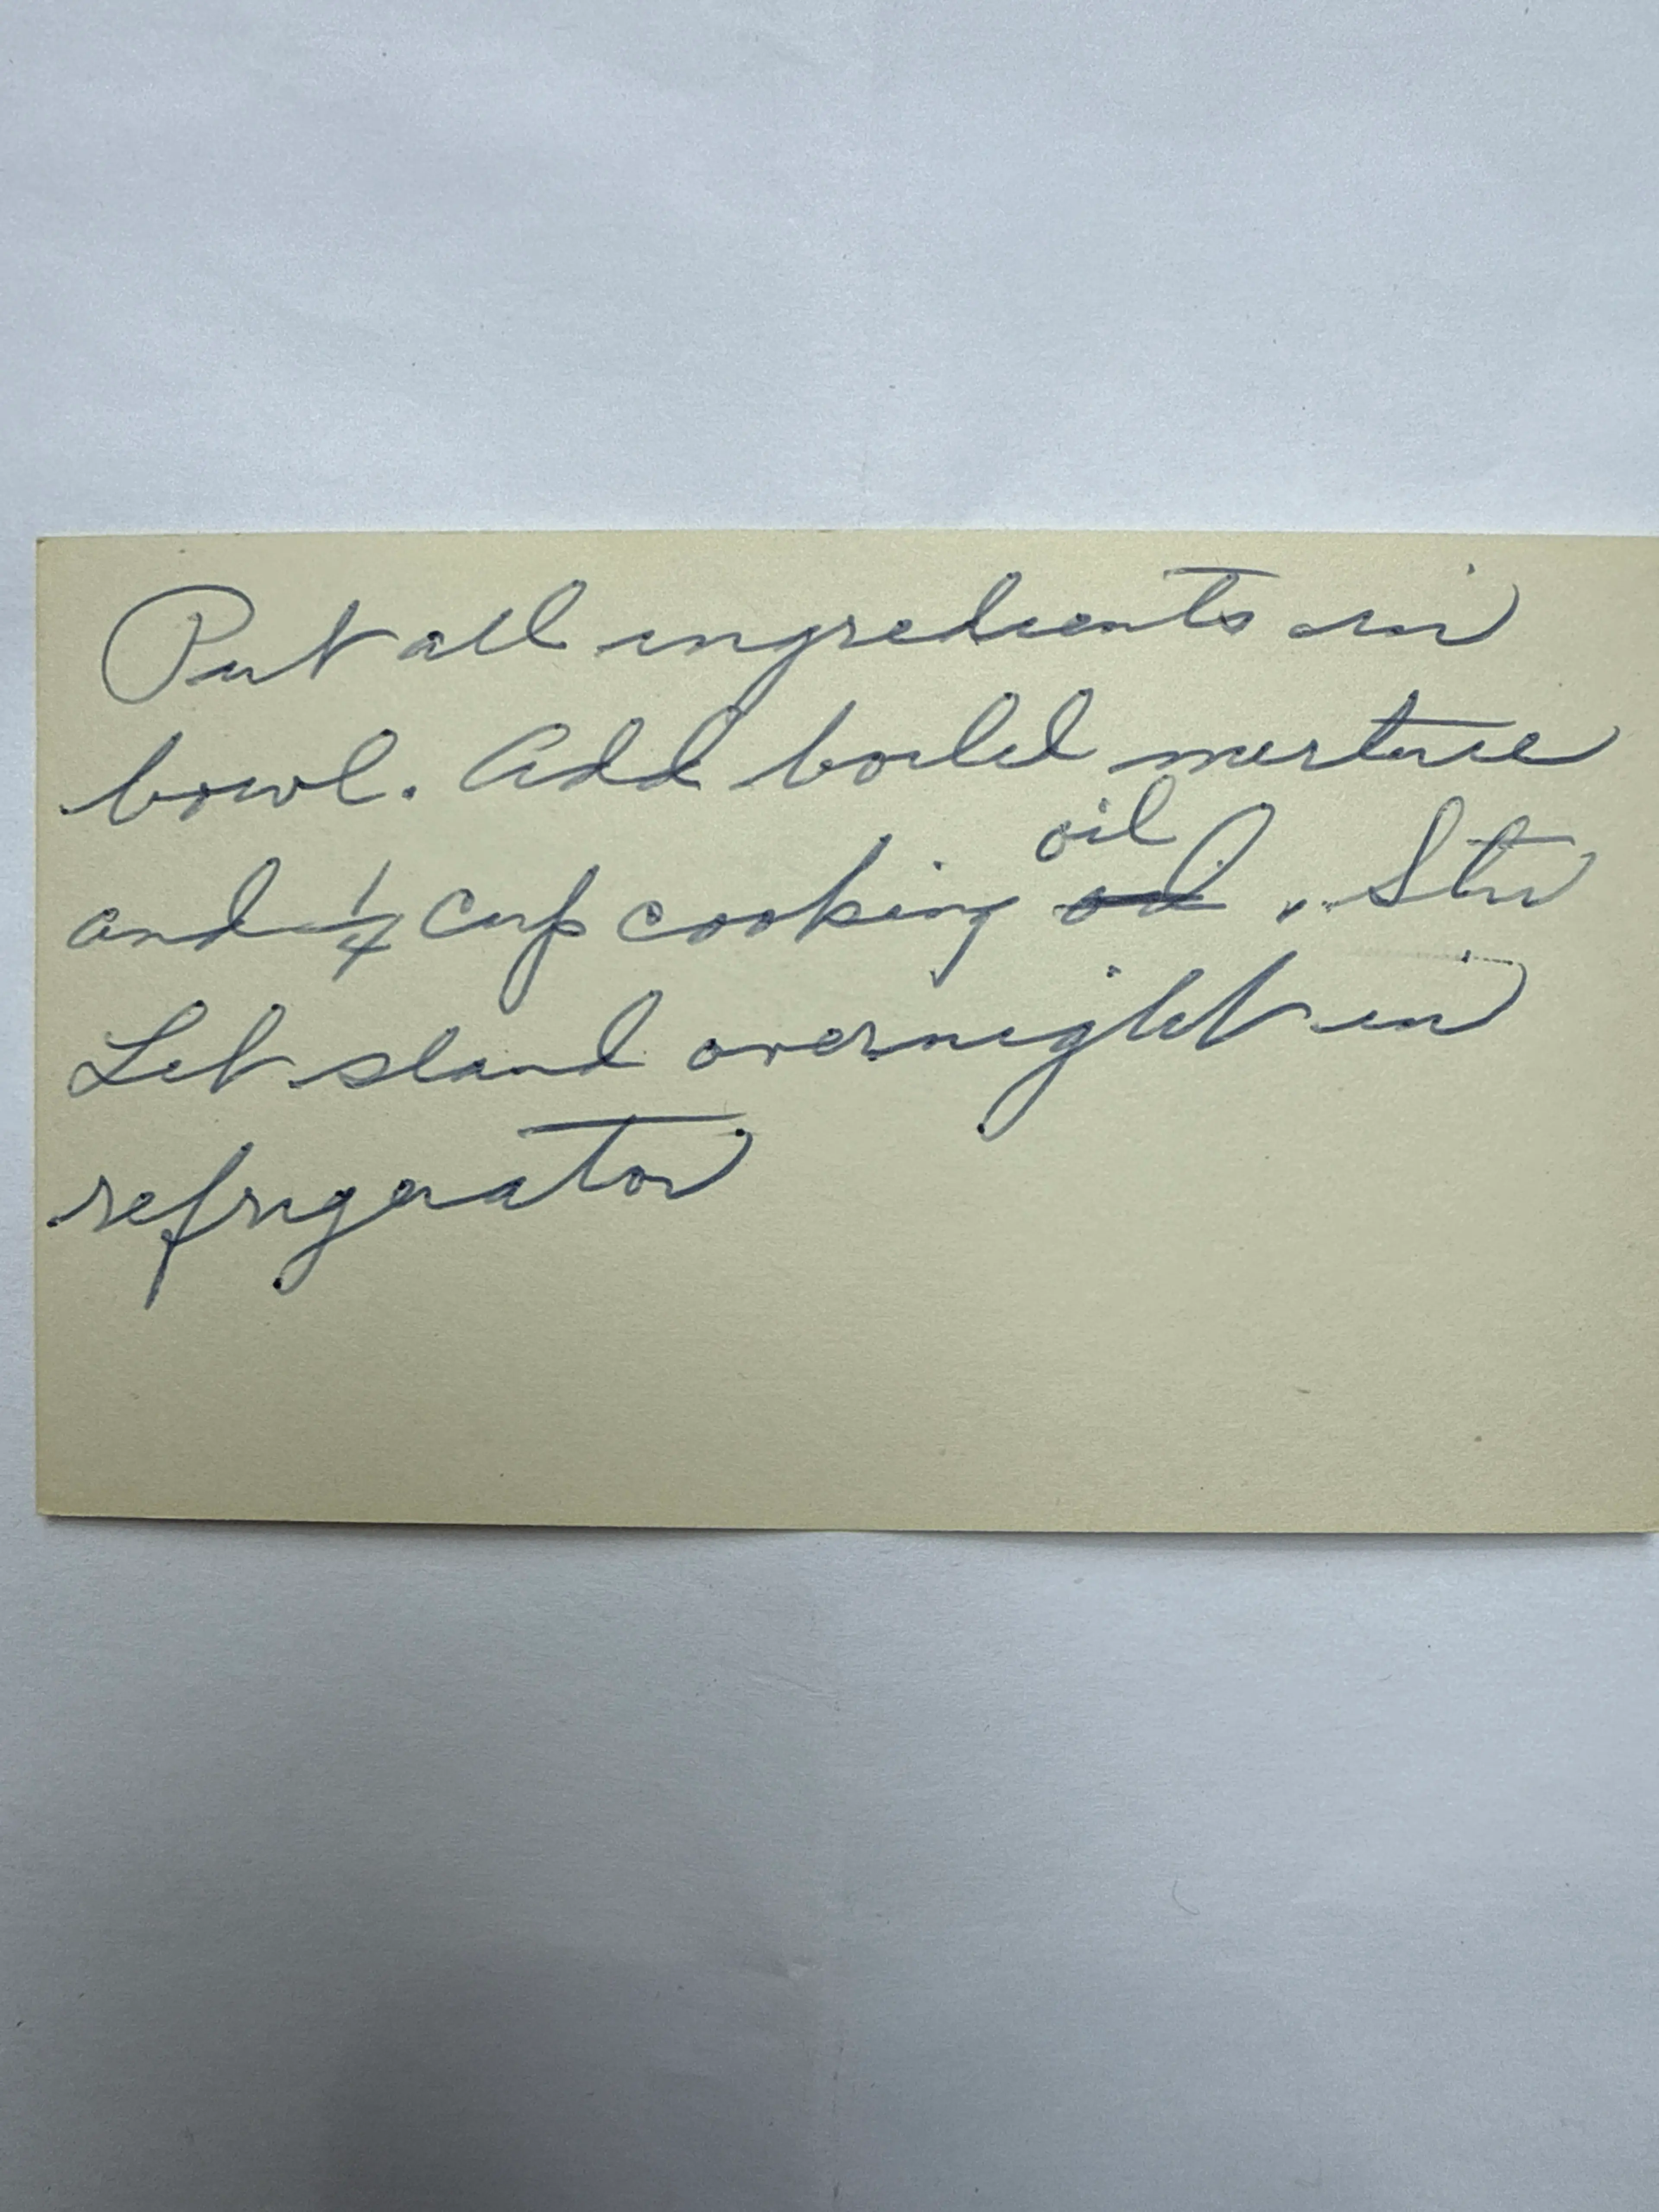 Put all ingredients in
bowl. Add boiled mixture
oil
and 1/4 cup cooking oil. Stir
Let stand overnight in
refrigerator